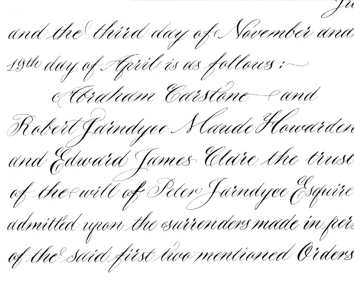 and the third day of November and
19th day of April is as follows :~
Abraham Carstone and
Robert Jarndyce Maude Howarden
and Edward James Clare the trust
of the will of Peter Jarndyce Esquire
admitted upon the surrenders made in pers
of the said first two mentioned Orders